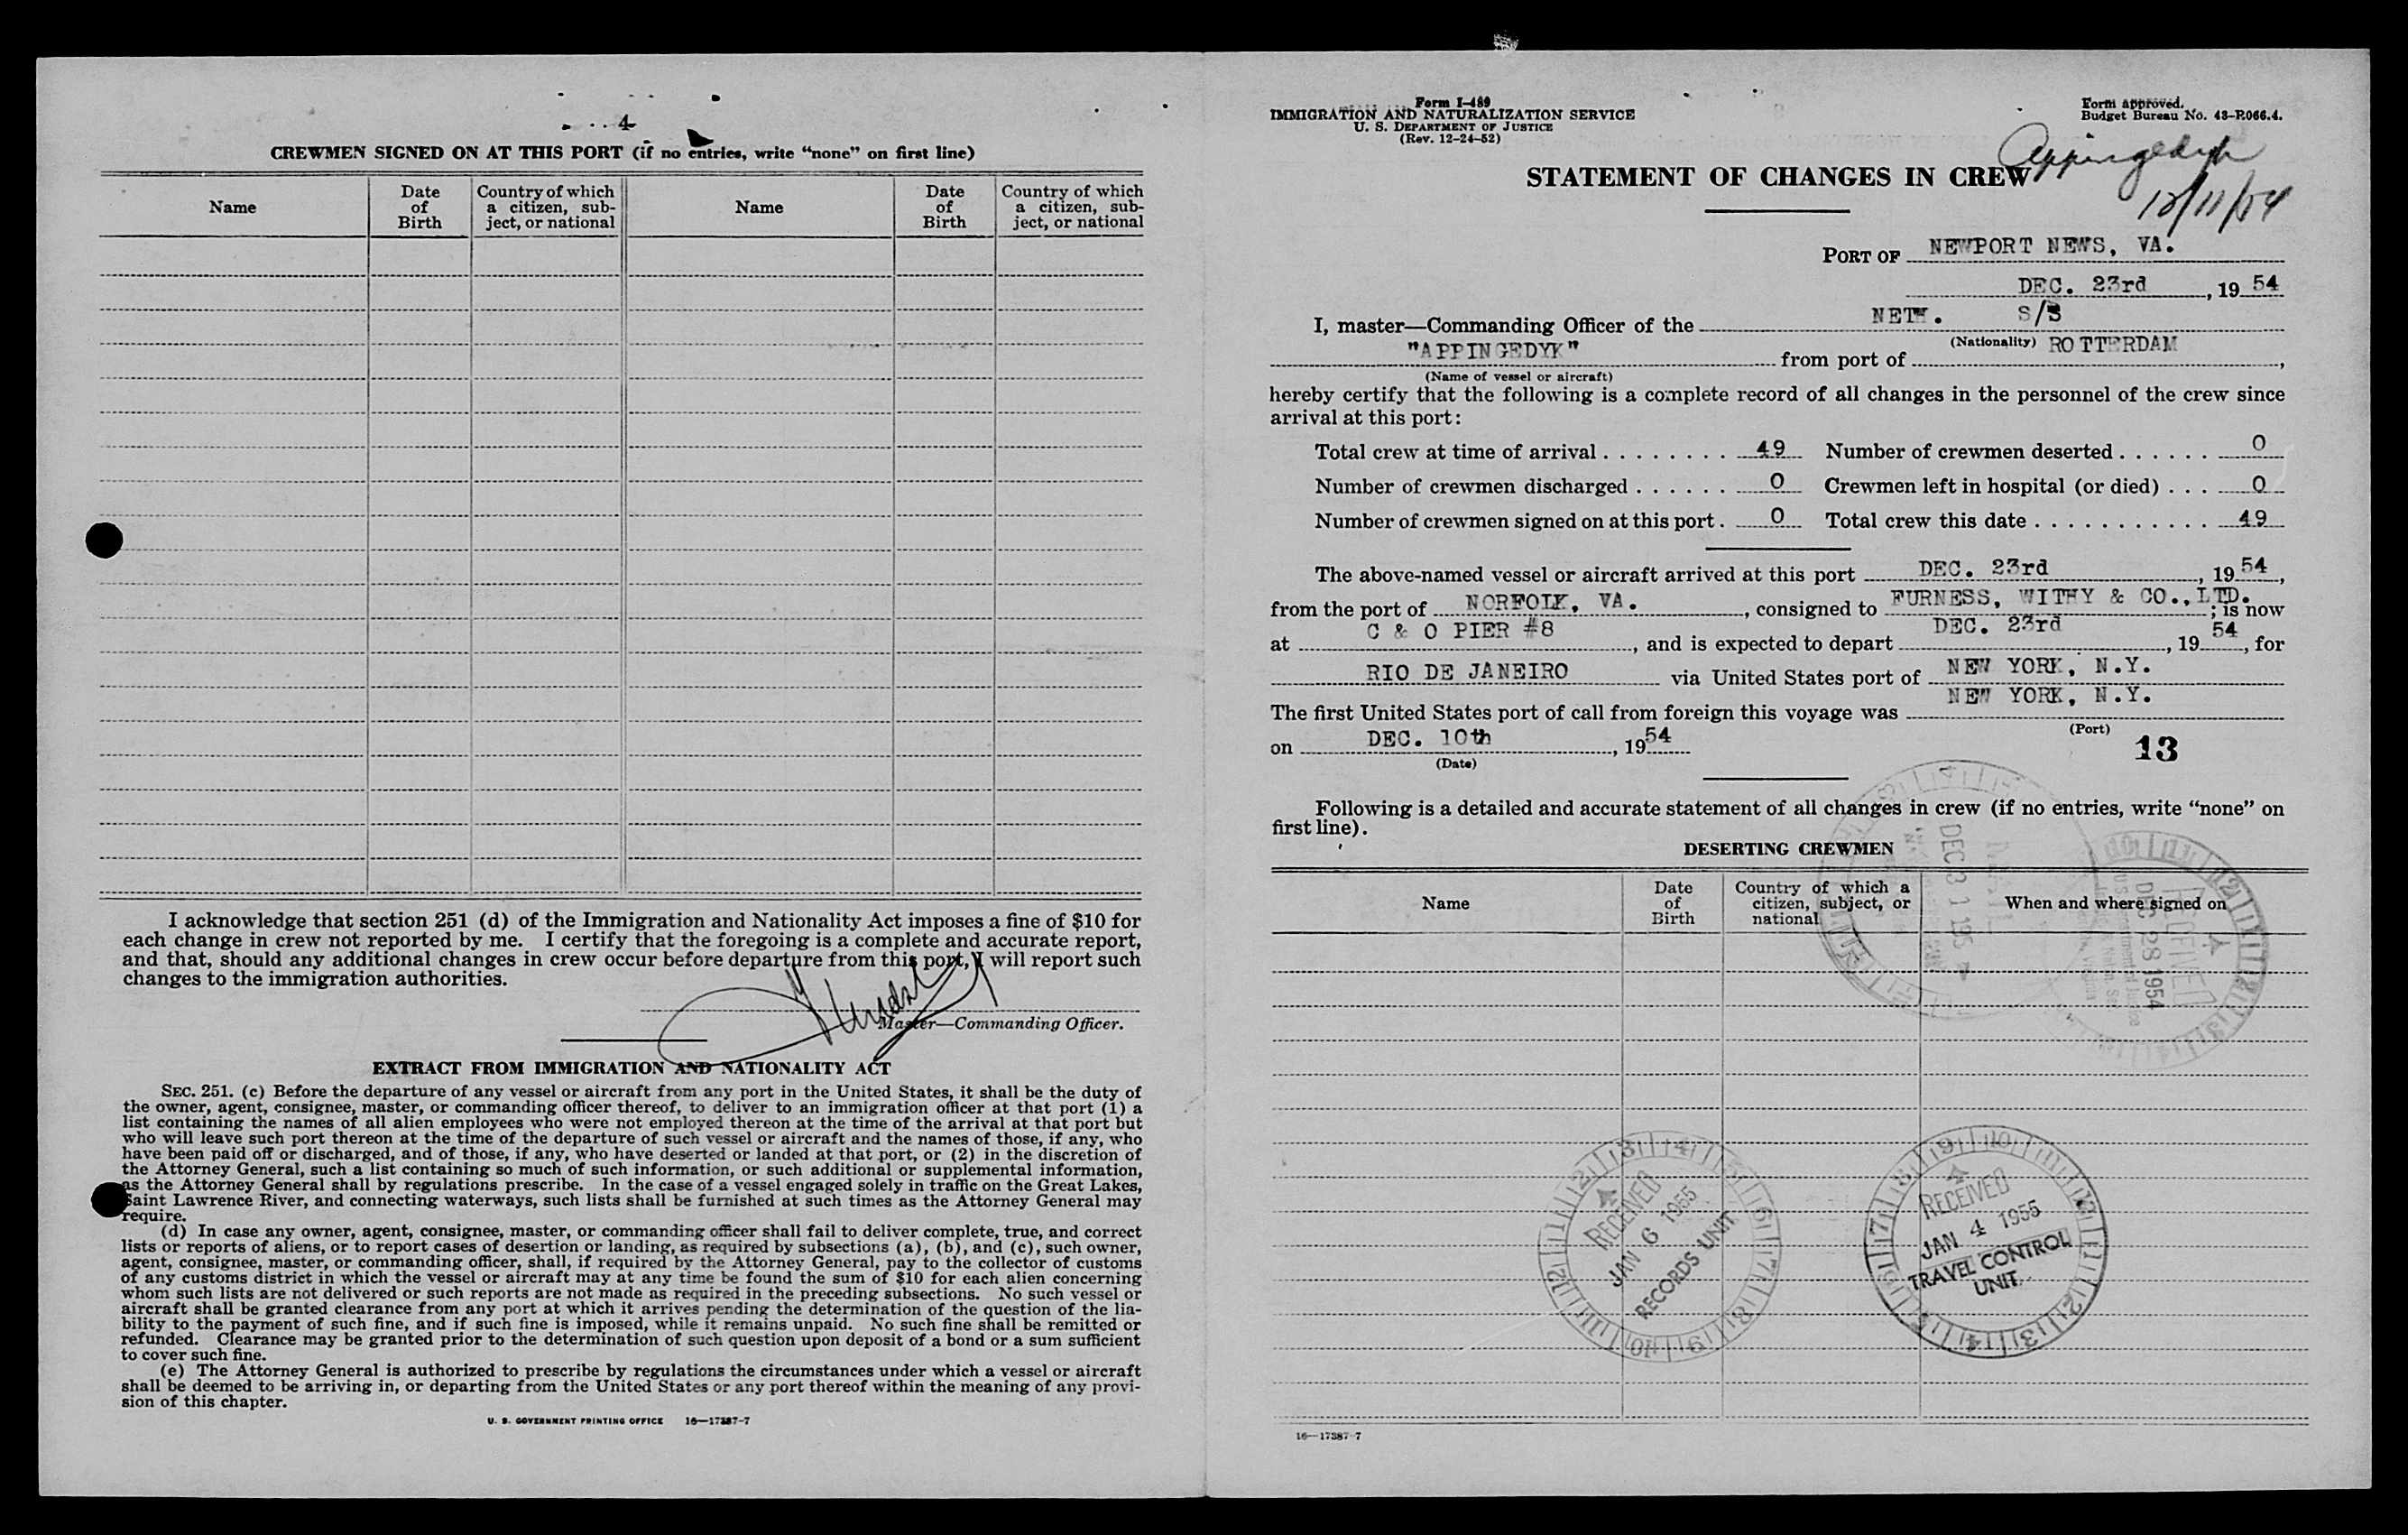 4
CREWMEN SIGNED ON AT THIS PORT (if no entries, write “none” on first line)
Name
Date of Birth
Country of which a citizen, sub-ject, or national
Name
Date of Birth
Country of which a citizen, sub-ject, or national
I acknowledge that section 251 (d) of the Immigration and Nationality Act imposes a fine of $10 for
each change in crew not reported by me. I certify that the foregoing is a complete and accurate report,
and that, should any additional changes in crew occur before departure from this port, I will report such
changes to the immigration authorities.
Master—Commanding Officer.
EXTRACT FROM IMMIGRATION AND NATIONALITY ACT
SEC. 251. (c) Before the departure of any vessel or aircraft from any port in the United States, it shall be the duty of
the owner, agent, consignee, master, or commanding officer thereof, to deliver to an immigration officer at that port (1) a
list containing the names of all alien employees who were not employed thereon at the time of the arrival at that port but
who will leave such port thereon at the time of the departure of such vessel or aircraft and the names of those, if any, who
have been paid off or discharged, and of those, if any, who have deserted or landed at that port, or (2) in the discretion of
the Attorney General, such a list containing so much of such information, or such additional or supplemental information,
as the Attorney General shall by regulations prescribe. In the case of a vessel engaged solely in traffic on the Great Lakes,
Saint Lawrence River, and connecting waterways, such lists shall be furnished at such times as the Attorney General may
require.
(d) In case any owner, agent, consignee, master, or commanding officer shall fail to deliver complete, true, and correct
lists or reports of aliens, or to report cases of desertion or landing, as required by subsections (a), (b), and (c), such owner,
agent, consignee, master, or commanding officer, shall, if required by the Attorney General, pay to the collector of customs
of any customs district in which the vessel or aircraft may at any time be found the sum of $10 for each alien concerning
whom such lists are not delivered or such reports are not made as required in the preceding subsections. No such vessel or
aircraft shall be granted clearance from any port at which it arrives pending the determination of the question of the lia-
bility to the payment of such fine, and if such fine is imposed, while it remains unpaid. No such fine shall be remitted or
refunded. Clearance may be granted prior to the determination of such question upon deposit of a bond or a sum sufficient
to cover such fine.
(e) The Attorney General is authorized to prescribe by regulations the circumstances under which a vessel or aircraft
shall be deemed to be arriving in, or departing from the United States or any port thereof within the meaning of any provi-
sion of this chapter.
U. S. GOVERNMENT PRINTING OFFICE 16—17387-7
Form I-489
IMMIGRATION AND NATURALIZATION SERVICE
U. S. DEPARTMENT OF JUSTICE
(Rev. 12-24-52)
Form approved.
Budget Bureau No. 43-R066.4.
Appingedyk
12/11/54
STATEMENT OF CHANGES IN CREW
PORT OF NEWPORT NEWS, VA.
DEC. 23rd, 19 54
I, master—Commanding Officer of the NETH. S/S
(Nationality)
"APPINGEDYK" from port of ROTTERDAM,
(Name of vessel or aircraft)
hereby certify that the following is a complete record of all changes in the personnel of the crew since
arrival at this port:
Total crew at time of arrival . . . . . . . . 49 Number of crewmen deserted . . . . . . 0
Number of crewmen discharged . . . . . . 0 Crewmen left in hospital (or died) . . . 0
Number of crewmen signed on at this port . 0 Total crew this date . . . . . . . . . . . 49
The above-named vessel or aircraft arrived at this port DEC. 23rd, 19 54,
from the port of NORFOLK, VA., consigned to FURNESS, WITHY & CO., LTD.; is now
at C & O PIER #8, and is expected to depart DEC. 23rd, 19 54, for
RIO DE JANEIRO via United States port of NEW YORK, N.Y.
The first United States port of call from foreign this voyage was NEW YORK, N.Y.
(Port)
on DEC. 10th, 19 54
(Date)
13
Following is a detailed and accurate statement of all changes in crew (if no entries, write “none” on
first line).
DESERTING CREWMEN
Name
Date of Birth
Country of which a citizen, subject, or national
When and where signed on
DEC 31 1954
RECEIVED
DEC 28 1954
RECEIVED
JAN 6 1955
RECORDS UNIT
RECEIVED
JAN 4 1955
TRAVEL CONTROL
UNIT
16—17387-7